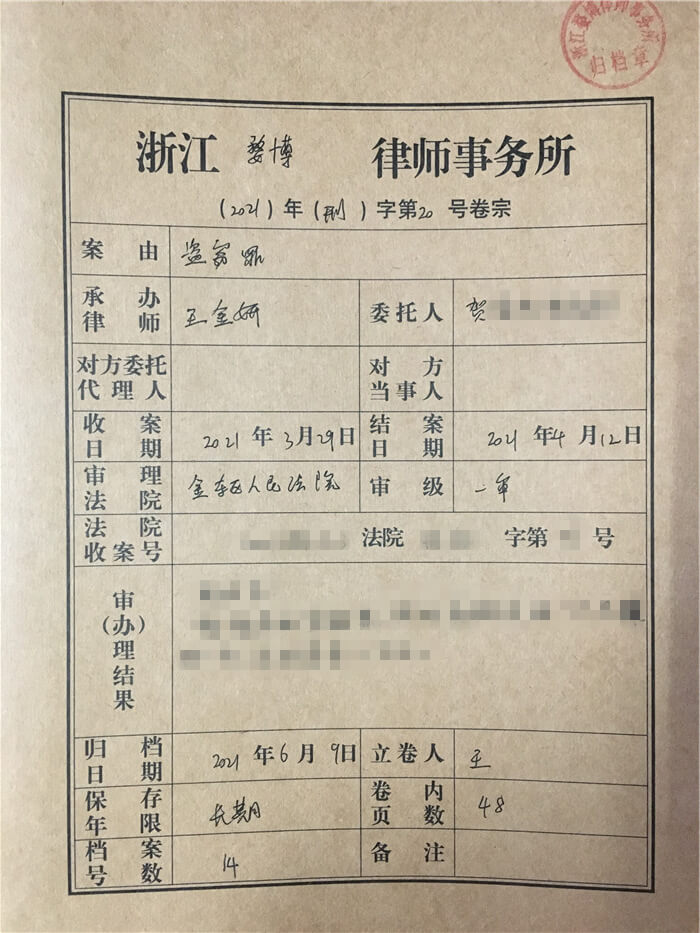 归档章
浙江 婺博 律师事务所
(2021)年(刑)字第20号卷宗
案由 盗窃罪
承办律师 王金妍 委托人 贺
对方委托代理人 对方当事人
收案日期 2021年3月29日 结案日期 2021年4月12日
审理法院 金东区人民法院 审级 一审
法院收案号 法院 字第 号
审(办)理结果
归档日期 2021年6月9日 立卷人 王
保存年限 长期 卷内页数 48
档案号数 14 备注